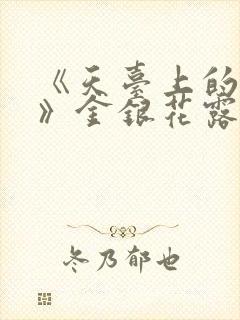 《天臺上的
》金銀花露
冬乃郁也